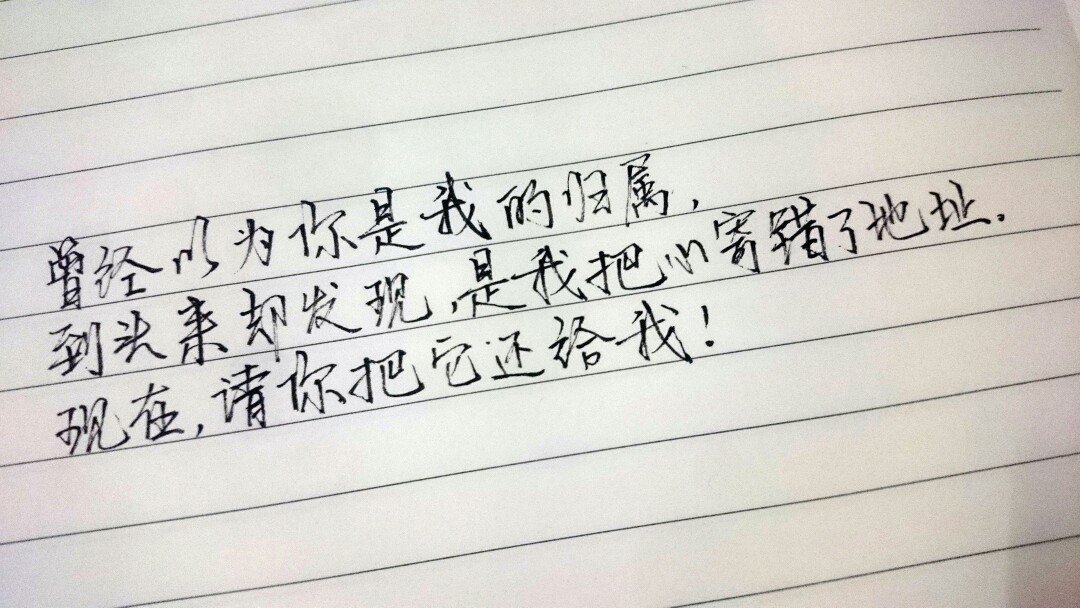 曾经以为你是我的归属，
到头来却发现，是我把心寄错了地址．
现在，请你把它还给我！